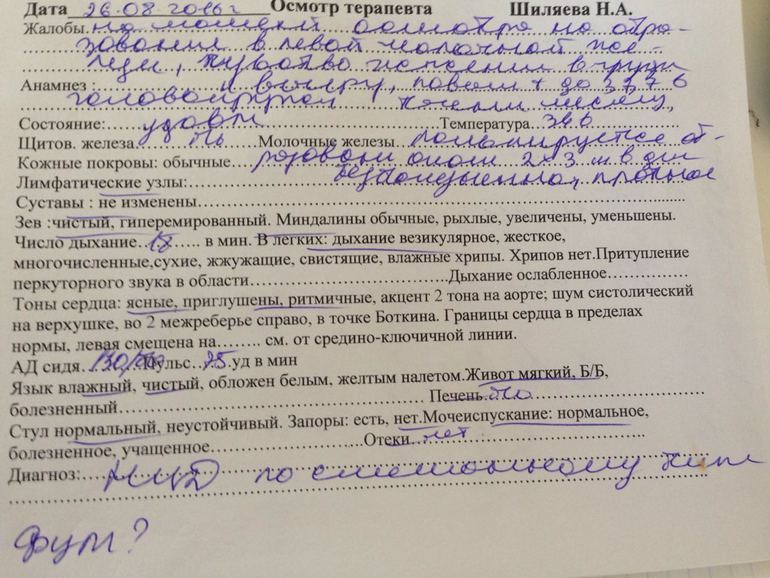 Дата 26.08.2016г Осмотр терапевта Шиляева Н.А.
Жалобы. на момент осмотра на обра-
зование в левой молочной же-
лезы, чувство жжения в груди
Анамнез : t до 37,6
головокружен
Состояние: удовл Температура 36,6
Щитов. железа. N Молочные железы пальпируется об-
Кожные покровы: обычные разован около 2х3 см в дм
Лимфатические узлы: безболезненное, плотное
Суставы : не изменены
Зев :чистый, гиперемированный. Миндалины обычные, рыхлые, увеличены, уменьшены.
Число дыхание. 18 в мин. В легких: дыхание везикулярное, жесткое,
многочисленные,сухие, жжужащие, свистящие, влажные хрипы. Хрипов нет.Притупление
перкуторного звука в области Дыхание ослабленное
Тоны сердца: ясные, приглушены, ритмичные, акцент 2 тона на аорте; шум систолический
на верхушке, во 2 межреберье справо, в точке Боткина. Границы сердца в пределах
нормы, левая смещена на........ см. от средино-ключичной линии.
АД сидя. Пульс. 75 уд в мин
Язык влажный, чистый, обложен белым, желтым налетом.Живот мягкий, Б/Б,
болезненный Печень.
Стул нормальный, неустойчивый. Запоры: есть, нет.Мочеиспускание: нормальное,
болезненное, учащенное Отеки. нет
Диагноз: НЦД по смешанному типу
Фум?